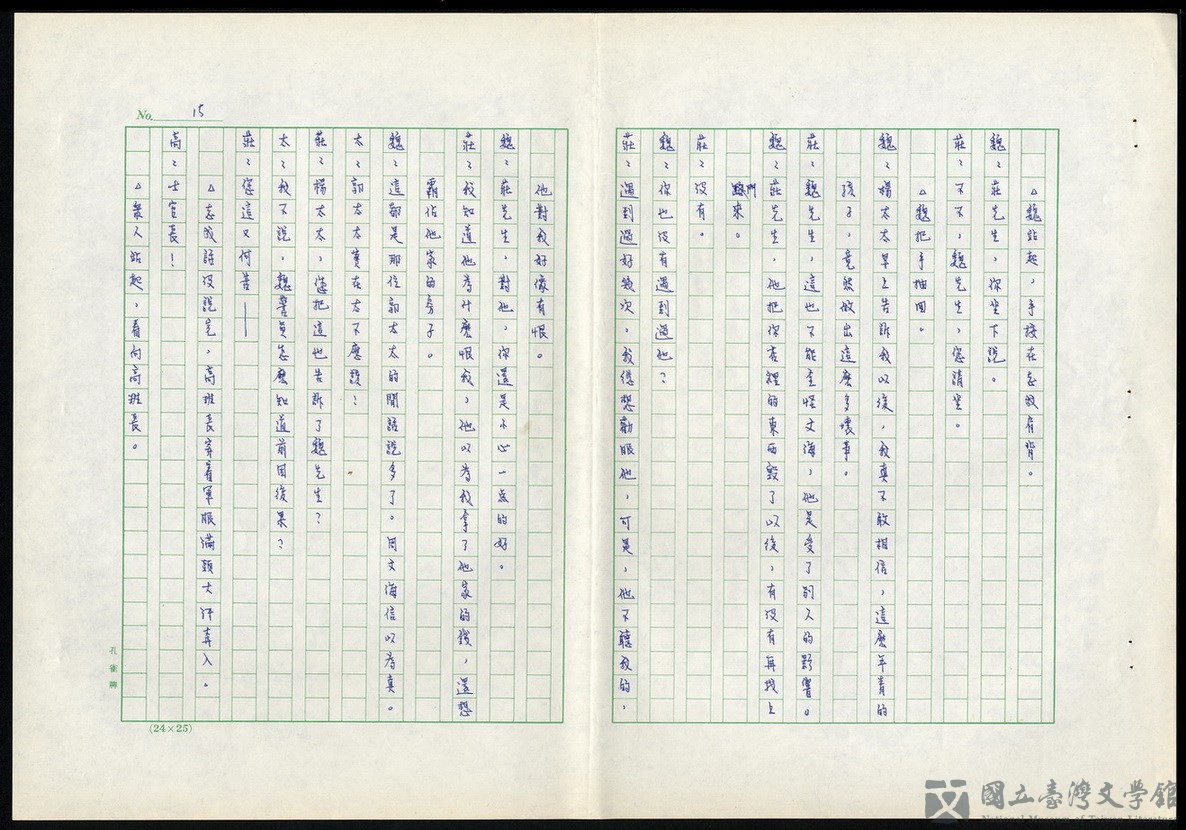 No. 15
△魏站起，手按在志成肩背。
魏：莊先生，你坐下說。
莊：不不，魏先生，您請坐。
△魏把手抽回。
魏：楊太太早上告訴我以後，我真不敢相信，這麼年青的
孩子，竟然做出這麼多壞事。
莊：魏先生，這也不能全怪文海，他是受了別人的影響。
魏：莊先生，他把你店裡的東西毀了以後，有沒有再找上
門來。
莊：沒有。
魏：你也沒有遇到過他？
莊：遇到過好幾次，我很想勸服他，可是，他不聽我的，
他對我好像有恨。
魏：莊先生，對他，你還是小心一点的好。
莊：我知道他為什麼恨我，他以為我拿了他家的錢，還想
霸佔他家的房子。
魏：這都是那位郭太太的閒話說多了，周文海信以為真。
太：郭太太實在太不應該！
莊：楊太太，您把這也告訴了魏先生？
太：我不說，魏警員怎麼知道前因後果？
莊：您這又何苦——
△志成話沒說完，高班長穿着軍服滿頭大汗奔入。
高：士官長！
△眾人站起，看向高班長。
孔雀牌
(24×25)
國立臺灣文學館
National Museum of Taiwan Literature